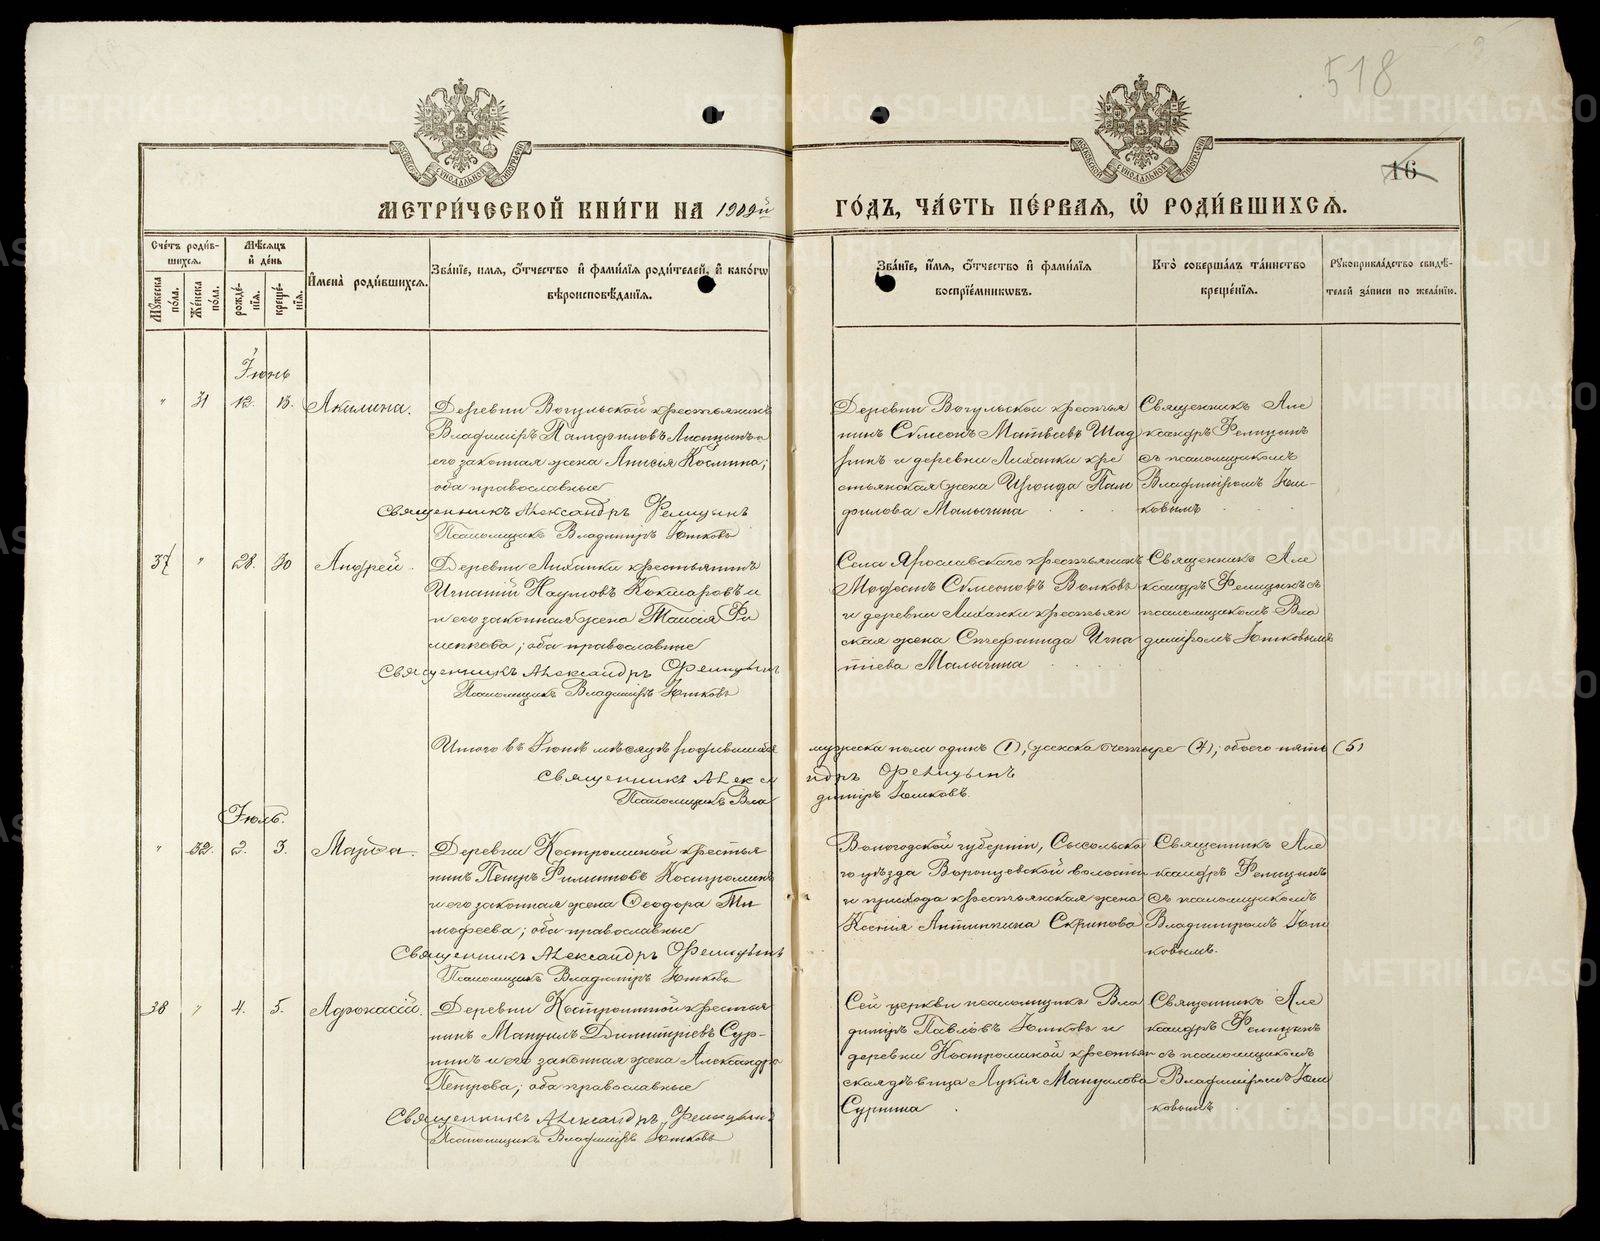 518
16
МЕТРИ́ЧЕСКОЙ КНИ́ГИ НА 1909й ГО́ДЪ, ЧА́СТЬ ПЕ́РВАЯ, Ѡ РОДИ́ВШИХСЯ.
Сче́тъ роди́вшихся.
Мꙋжеска по́ла.
Же́нска по́ла.
Мѣ́сяцъ и де́нь
рожде́нїя.
креще́нїя.
Имена̀ роди́вшихся.
Зва́нїе, имя, о́тчество и фами́лїя роди́телей, и како́гѡ
вѣроисповѣ́данїя.
Зва́нїе, и́мя, о́тчество и фами́лїя
воспрїе́мникѡвъ.
Кто̀ соверша́лъ та́инство
креще́нїя.
Рꙋкоприкла́дство свидѣ́-
телей за́писи по жела́нїю.
Іюнь
" 31 12. 13. Акилина.
Деревни Вогульской крестьянинъ
Владиміръ Памфиловъ Лисицынъ и
его законная жена Анисія Космина;
оба православные
Священникъ Александръ Фелицынъ
Псаломщикъ Владиміръ Юшковъ
Деревни Вогульской крестья
нинъ Сѵмеонъ Матвеевъ Шад
ринъ и деревни Лиханки кре
стьянская жена Ираида Пам
филова Малыгина
Священникъ Але
ксандръ Фелицынъ
съ псаломщикомъ
Владиміромъ Юш-
ковымъ
37 " 28. 30 Андрей.
Деревни Лиханки крестьянинъ
Игнатій Наумовъ Кокшаровъ и
и его законная жена Таисія Фи
липпова; оба православные
Священникъ Александръ Фелицынъ
Псаломщикъ Владиміръ Юшковъ
Села Ярославского крестьянинъ
Модестъ Сѵмеоновъ Волковъ
и деревни Лиханки крестьян
ская жена Стефанида Игна
тіева Малыгина
Священникъ Але
ксандръ Фелицынъ съ
псаломщикомъ Вла
диміромъ Юшковымъ
Итого въ Іюнѣ мѣсяцѣ родившихся мужеска пола одинъ (1), женска четыре (4); обоего пять (5)
Священникъ Александръ Фелицынъ
Псаломщикъ Владиміръ Юшковъ.
Іюль.
" 32. 2. 3. Марѳа.
Деревни Костроминой крестья
нинъ Петръ Филипповъ Костроминъ
и его законная жена Ѳеодора Ти
мофеева; оба православные
Священникъ Александръ Фелицынъ
Псаломщикъ Владиміръ Юшковъ
Вологодской губерніи, Сысольска
го уѣзда Воронцевской волости
и прихода крестьянская жена
Ксенія Антипина Скрипова
Священникъ Але
ксандръ Фелицынъ
съ псаломщикомъ
Владиміромъ Юш
ковымъ.
38 " 4. 5. Афанасій.
Деревни Костроминой крестья
нинъ Мануилъ Димитріевъ Сур-
нинъ и его законная жена Александра
Петрова; оба православные
Священникъ Александръ Фелицынъ
Псаломщикъ Владиміръ Юшковъ
Сей церкви псаломщикъ Вла
диміръ Павловъ Юшковъ и
деревни Костроминой крестьян
ская дѣвица Лукія Мануилова
Сурнина
Священникъ Але
ксандръ Фелицынъ
съ псаломщикомъ
Владиміромъ Юш
ковымъ
METRIKI.GASO-URAL.RU